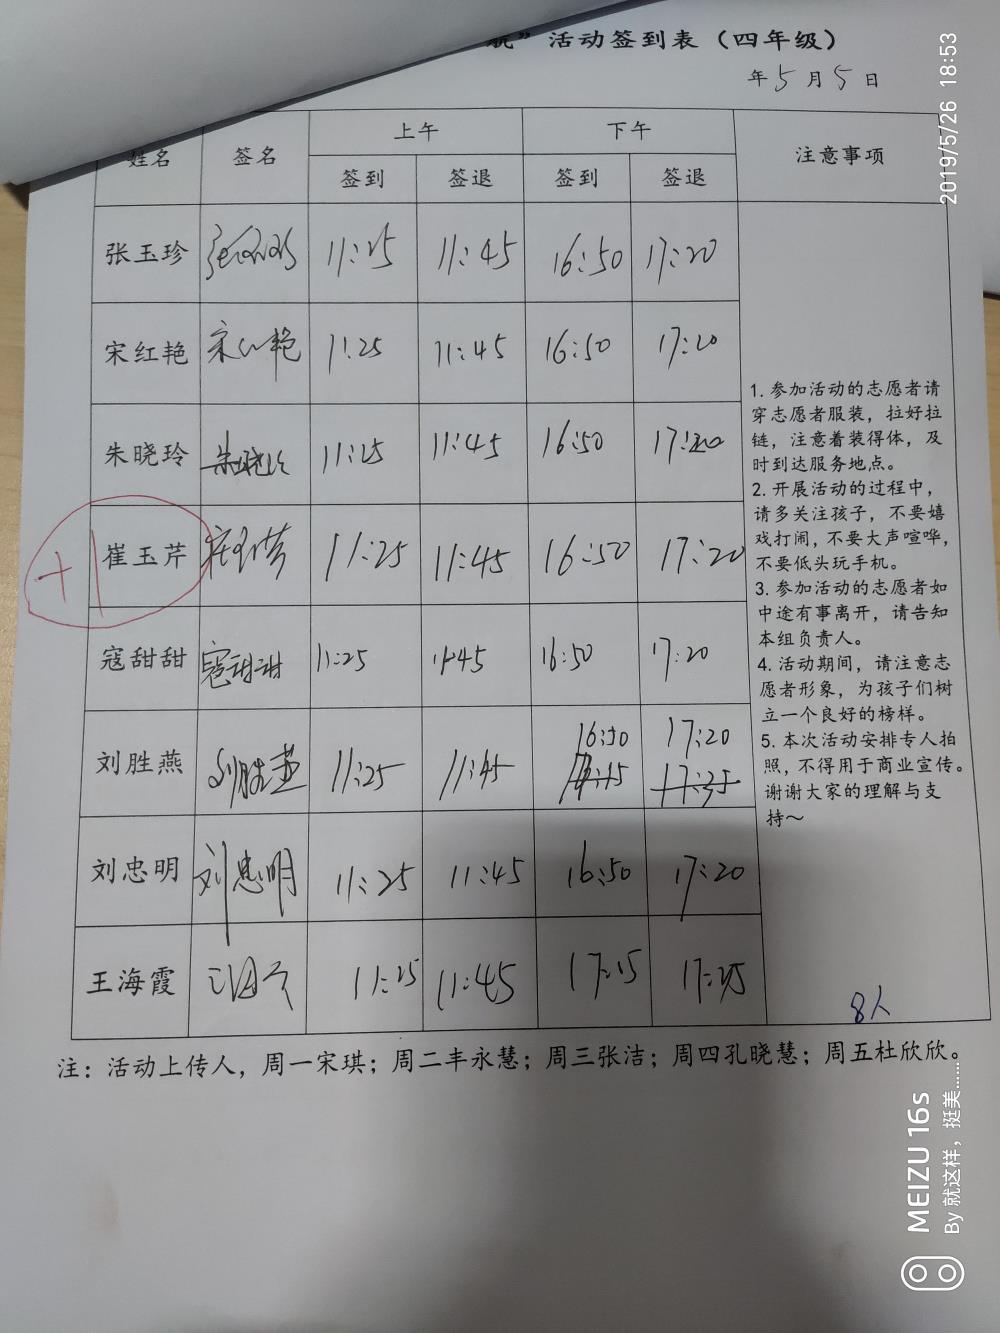 航”活动签到表（四年级）
年5月5日
姓名 签名 上午 下午 注意事项
签到 签退 签到 签退
张玉珍 张玉珍 11:25 11:45 16:50 17:20
宋红艳 宋红艳 11:25 11:45 16:50 17:20
朱晓玲 朱晓玲 11:25 11:45 16:50 17:20
+1 崔玉芹 崔玉芹 11:25 11:45 16:50 17:20
寇甜甜 寇甜甜 11:25 11:45 16:50 17:20
16:50 17:20
刘胜燕 刘胜燕 11:25 11:45 17:15 17:25
刘忠明 刘忠明 11:25 11:45 16:50 17:20
王海霞 王海霞 11:25 11:45 17:15 17:25
1. 参加活动的志愿者请
穿志愿者服装，拉好拉
链，注意着装得体，及
时到达服务地点。
2. 开展活动的过程中，
请多关注孩子，不要嬉
戏打闹，不要大声喧哗，
不要低头玩手机。
3. 参加活动的志愿者如
中途有事离开，请告知
本组负责人。
4. 活动期间，请注意志
愿者形象，为孩子们树
立一个良好的榜样。
5. 本次活动安排专人拍
照，不得用于商业宣传。
谢谢大家的理解与支
持～
8人
注：活动上传人，周一宋琪；周二丰永慧；周三张洁；周四孔晓慧；周五杜欣欣。
2019/5/26 18:53
MEIZU 16s
By 就这样，挺美......